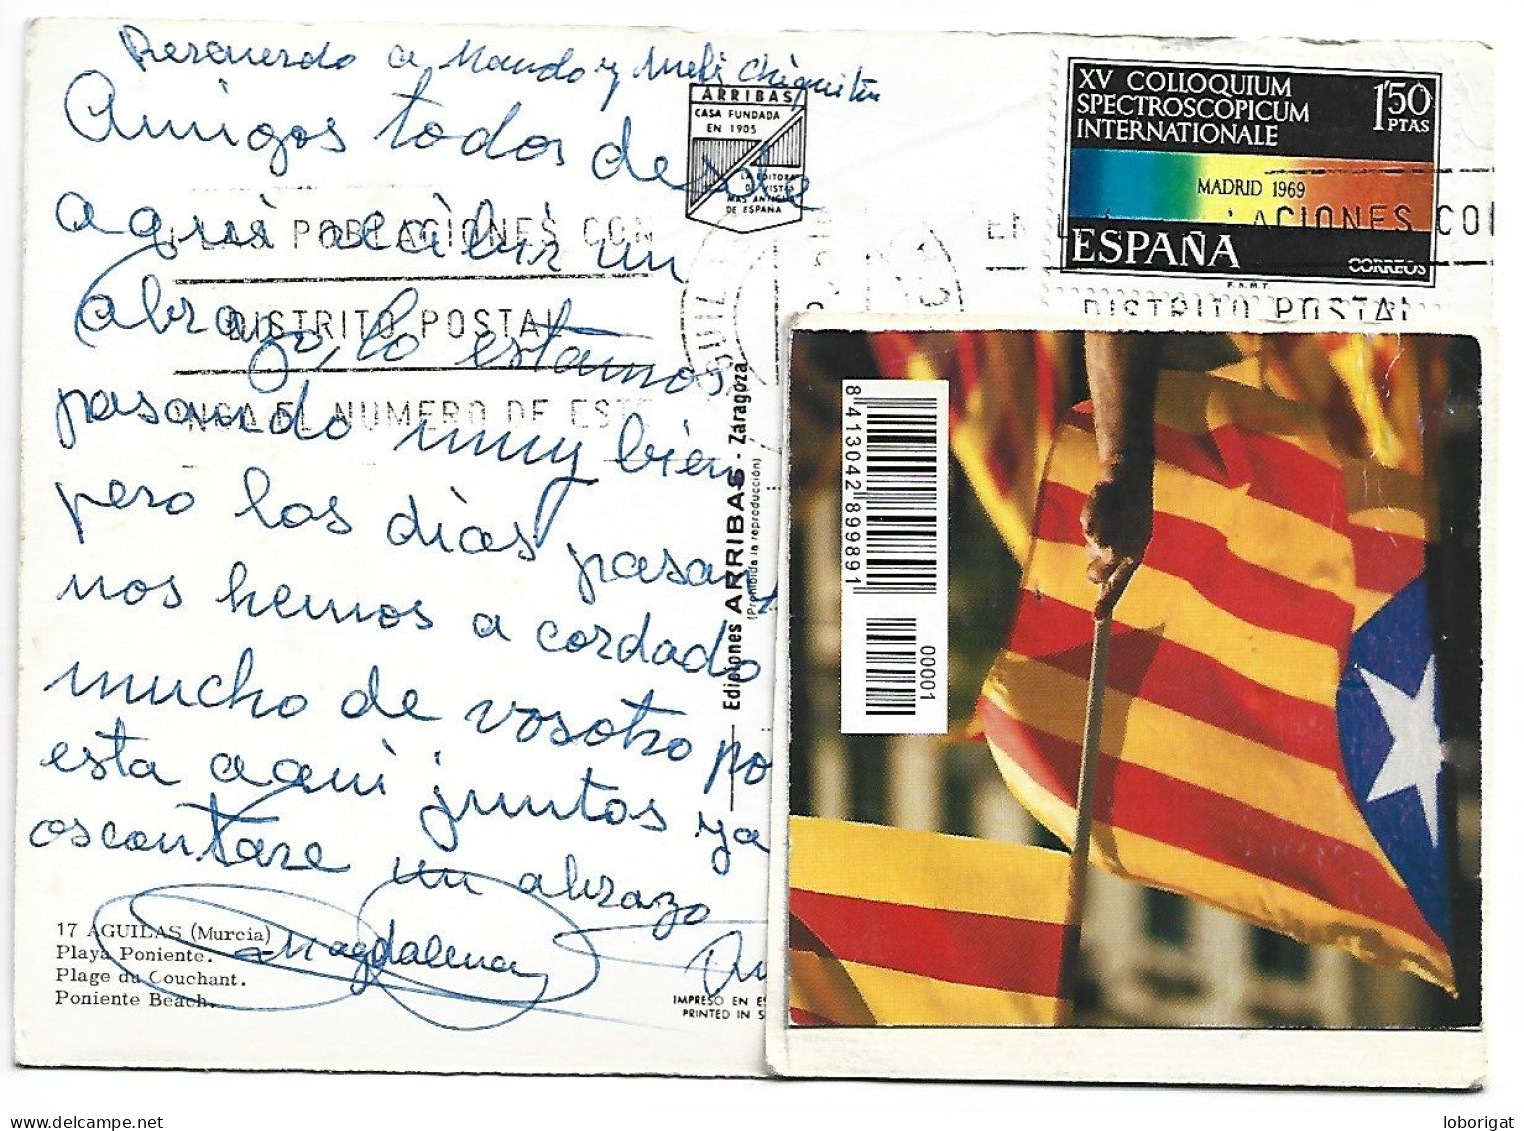 Recuerdo a Nando y Meli Chiquitin
Amigos todos desde
aqui recibir un
abrazo, lo estamos
pasando muy bien
pero los dias pasan y
nos hemos a cordado
mucho de vosotro po
esta aqui juntos ya
os contare un abrazo
Magdalena
17 AGUILAS (Murcia)
Playa Poniente.
Plage du Couchant.
Poniente Beach.
ARRIBAS
CASA FUNDADA
EN 1905
LA EDITORA
DE VISTAS
MAS ANTIGUA
DE ESPAÑA
EN LAS POBLACIONES CON
DISTRITO POSTAL
PONGA EL NUMERO DE ESTE
Ediciones ARRIBAS - Zaragoza
(Prohibida la reproducción)
IMPRESO EN ES
PRINTED IN S
XV COLLOQUIUM
SPECTROSCOPICUM
INTERNATIONALE
1'50
PTAS
MADRID 1969
ESPAÑA
CORREOS
F.N.M.T.
EN LAS POBLACIONES CON
DISTRITO POSTAL
8 413042 899891
00001
loborigat